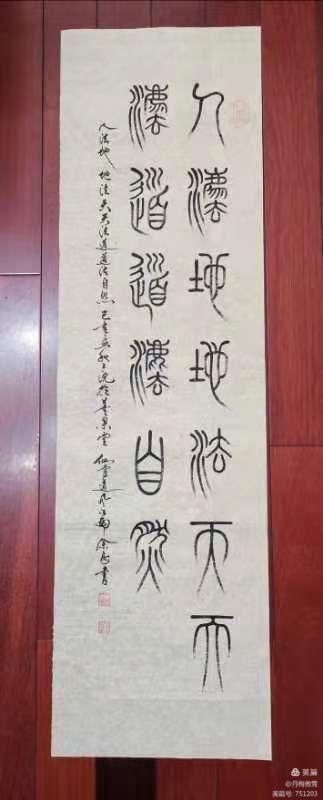 人灋地地法天天
灋道道灋自然
人法地 地法天天法道道法自然 己亥 書
美篇
@丹梅傲雪
美篇号: 751203